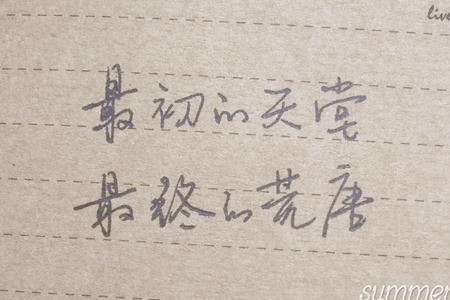 live
最初的天堂
最终的荒唐
summer